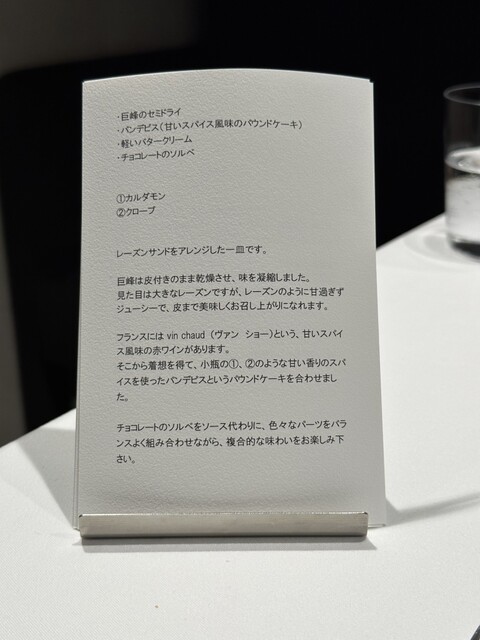 ・巨峰のセミドライ
・パンデピス（甘いスパイス風味のパウンドケーキ）
・軽いバタークリーム
・チョコレートのソルベ
①カルダモン
②クローブ
レーズンサンドをアレンジした一皿です。
巨峰は皮付きのまま乾燥させ、味を凝縮しました。
見た目は大きなレーズンですが、レーズンのように甘過ぎず
ジューシーで、皮まで美味しくお召し上がりになれます。
フランスには vin chaud （ヴァン　ショー）という、甘いスパイ
ス風味の赤ワインがあります。
そこから着想を得て、小瓶の①、②のような甘い香りのスパ
イスを使ったパンデピスというパウンドケーキを合わせまし
た。
チョコレートのソルベをソース代わりに、色々なパーツをバラ
ンスよく組み合わせながら、複合的な味わいをお楽しみ下
さい。